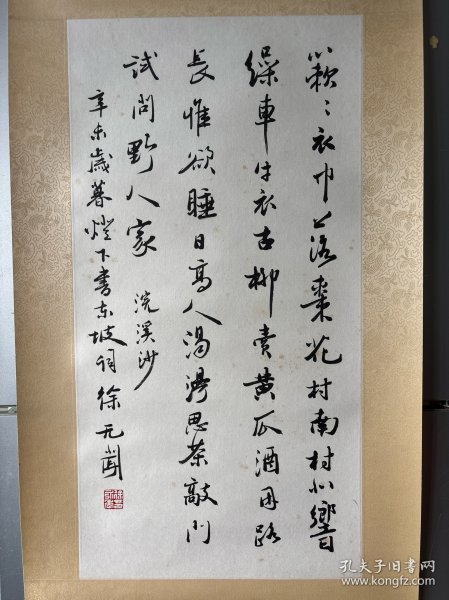 簌〻衣巾落棗花村南村北響
繰車牛衣古柳賣黄瓜酒困路
長惟欲睡日高人渴漫思茶敲门
試問野人家 浣溪沙
辛未歲暮燈下書東坡詞徐无聞
孔夫子旧书网
www.kongfz.com